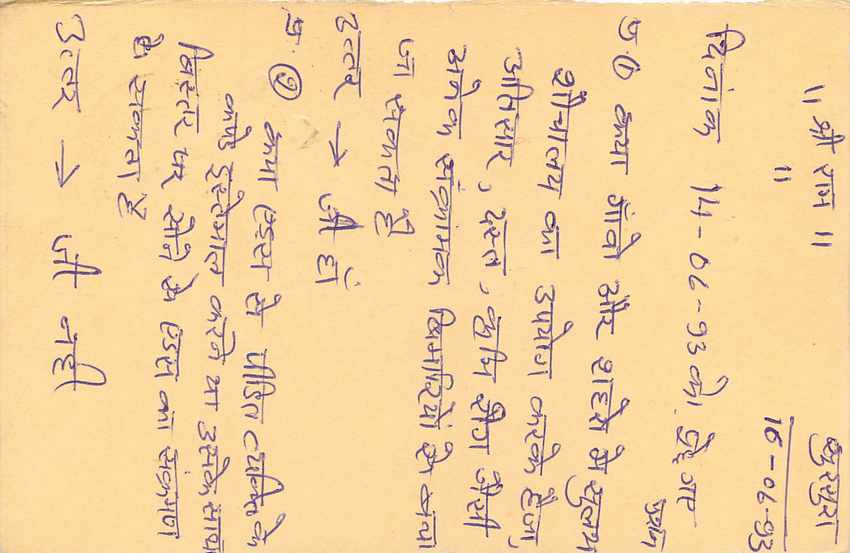 ॥ श्री राम ॥
॥
सुरसुरा
16-06-93
दिनांक 14-06-93 को पूछे गए
प्रश्न
प्र. ① क्या गांवो और शहरो मे सुलभ
शौचालय का उपयोग करके हैजा,
अतिसार, दस्त, कृमि रोग जैसी
अनेक संक्रामक बिमारियों से बचा
जा सकता है
उत्तर → जी हाँ
प्र. ② क्या एड्स से पीडित व्यक्ति के
कपडे इस्तेमाल करने या उसके साथ
बिस्तर पर सोने से एड्स का संक्रमण
हो सकता है
उत्तर → जी नही